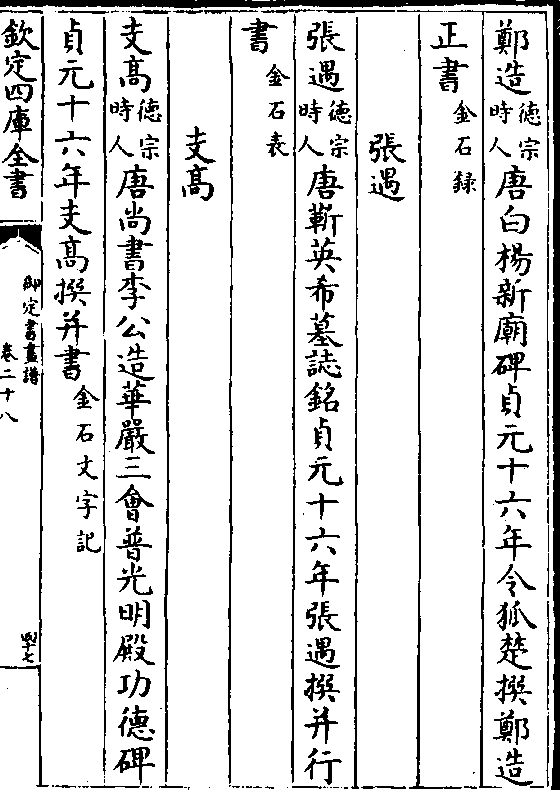 鄭造德宗時人唐白楊新廟碑貞元十六年令狐楚撰鄭造
正書金石録
張遇
張遇德宗時人唐蘄英布墓誌銘貞元十六年張遇撰并行
書金石表
支高
支高德宗時人唐尚書李公造華嚴三會普光明殿功德碑
貞元十六年支高撰并書金石文字記
欽定四庫全書
御定書畫譜
卷二十八
四十七